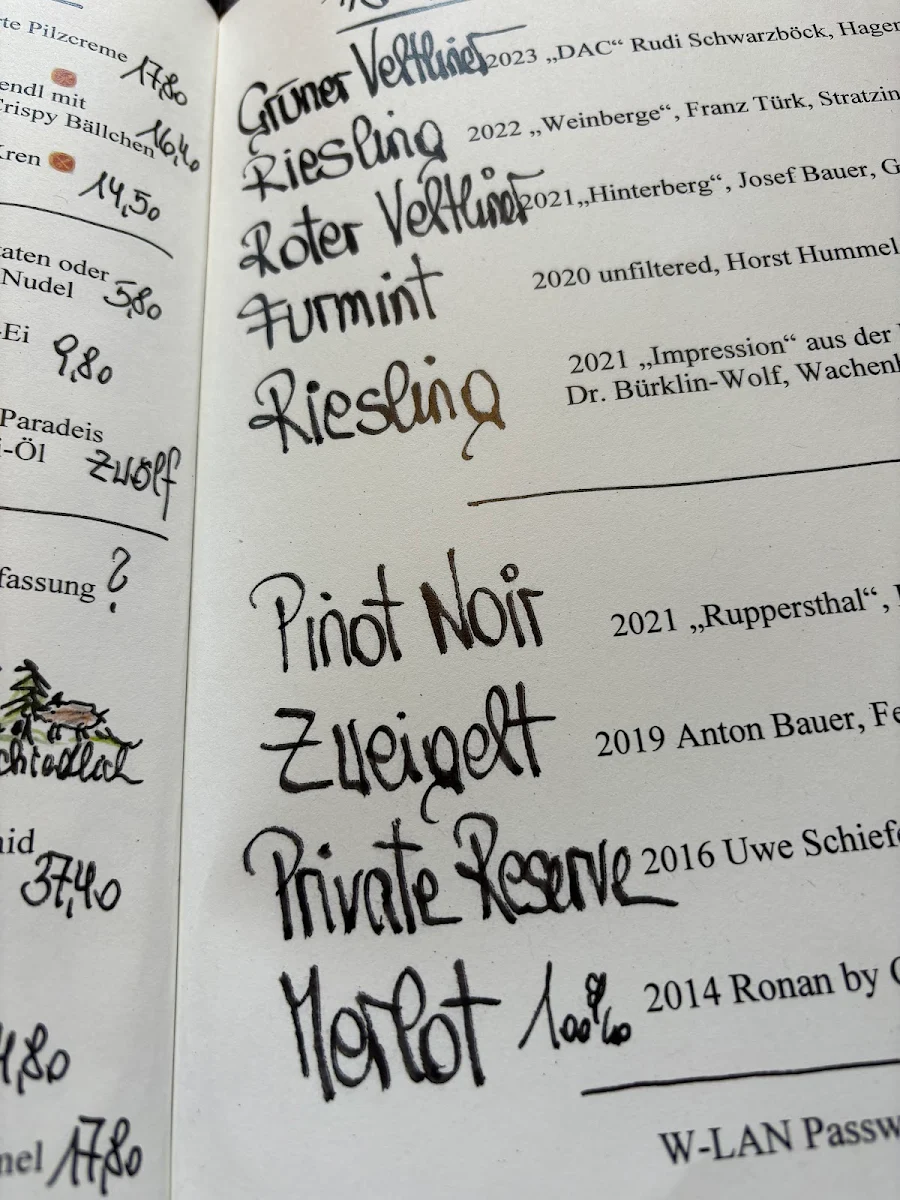 rte Pilzcreme 17,80
endl mit
Crispy Bällchen 16,40
Kren 14,50
aten oder
Nudel 5,80
Ei 9,80
Paradeis
i-Öl zwölf
fassung ?
chiedlich
id
37,40
4,80
mel 17,80
Grüner Veltliner 2023 „DAC“ Rudi Schwarzböck, Hagen
Riesling 2022 „Weinberge“, Franz Türk, Stratzin
Roter Veltliner 2021 „Hinterberg“, Josef Bauer, G
Furmint 2020 unfiltered, Horst Hummel
Riesling 2021 „Impression“ aus der
Dr. Bürklin-Wolf, Wachenh
Pinot Noir 2021 „Ruppersthal“,
Zweigelt 2019 Anton Bauer, Fe
Private Reserve 2016 Uwe Schiefe
Merlot 100% 2014 Ronan by C
W-LAN Passw